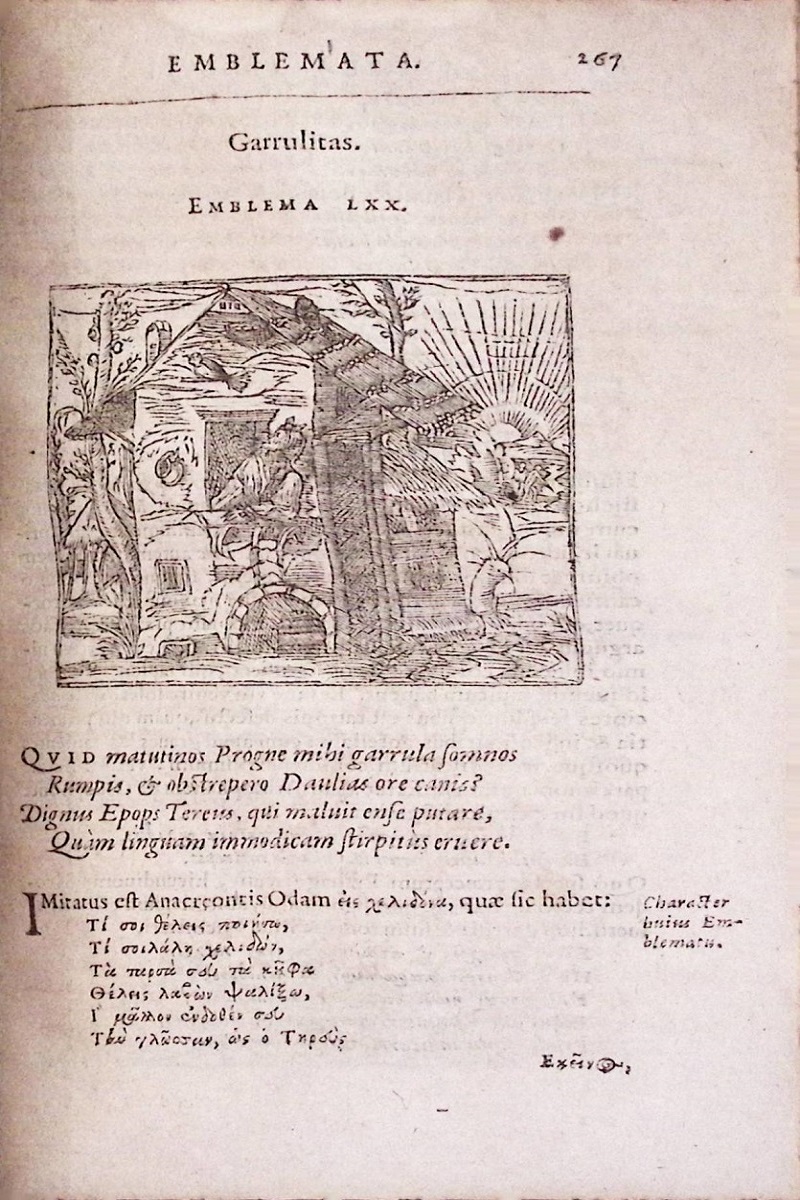 EMBLEMATA. 267
Garrulitas.
EMBLEMA LXX.
QVID matutinos Progne mihi garrula ſomnos
Rumpis, & obſtrepero Daulias ore canis?
Dignus Epops Tereus, qui maluit enſe putare,
Quàm linguam immodicam ſtirpitùs eruere.
IMitatus eſt Anacreontis Odam εἰς χελιδόνα, quæ ſic habet:
Character
huius Em-
blematis.
Τί σοι θέλεις ποιήσω,
Τί σοι λάλη χελιδὼν,
Τὰ ταρσὰ σοῦ τὰ κοῦφα
Θέλεις λαβὼν ψαλίξω,
μᾶλλον ἔνδοθέν σου
Τὴν γλῶσσαν, ὡς ὁ Τηρεὺς
Ἐκεῖνος,